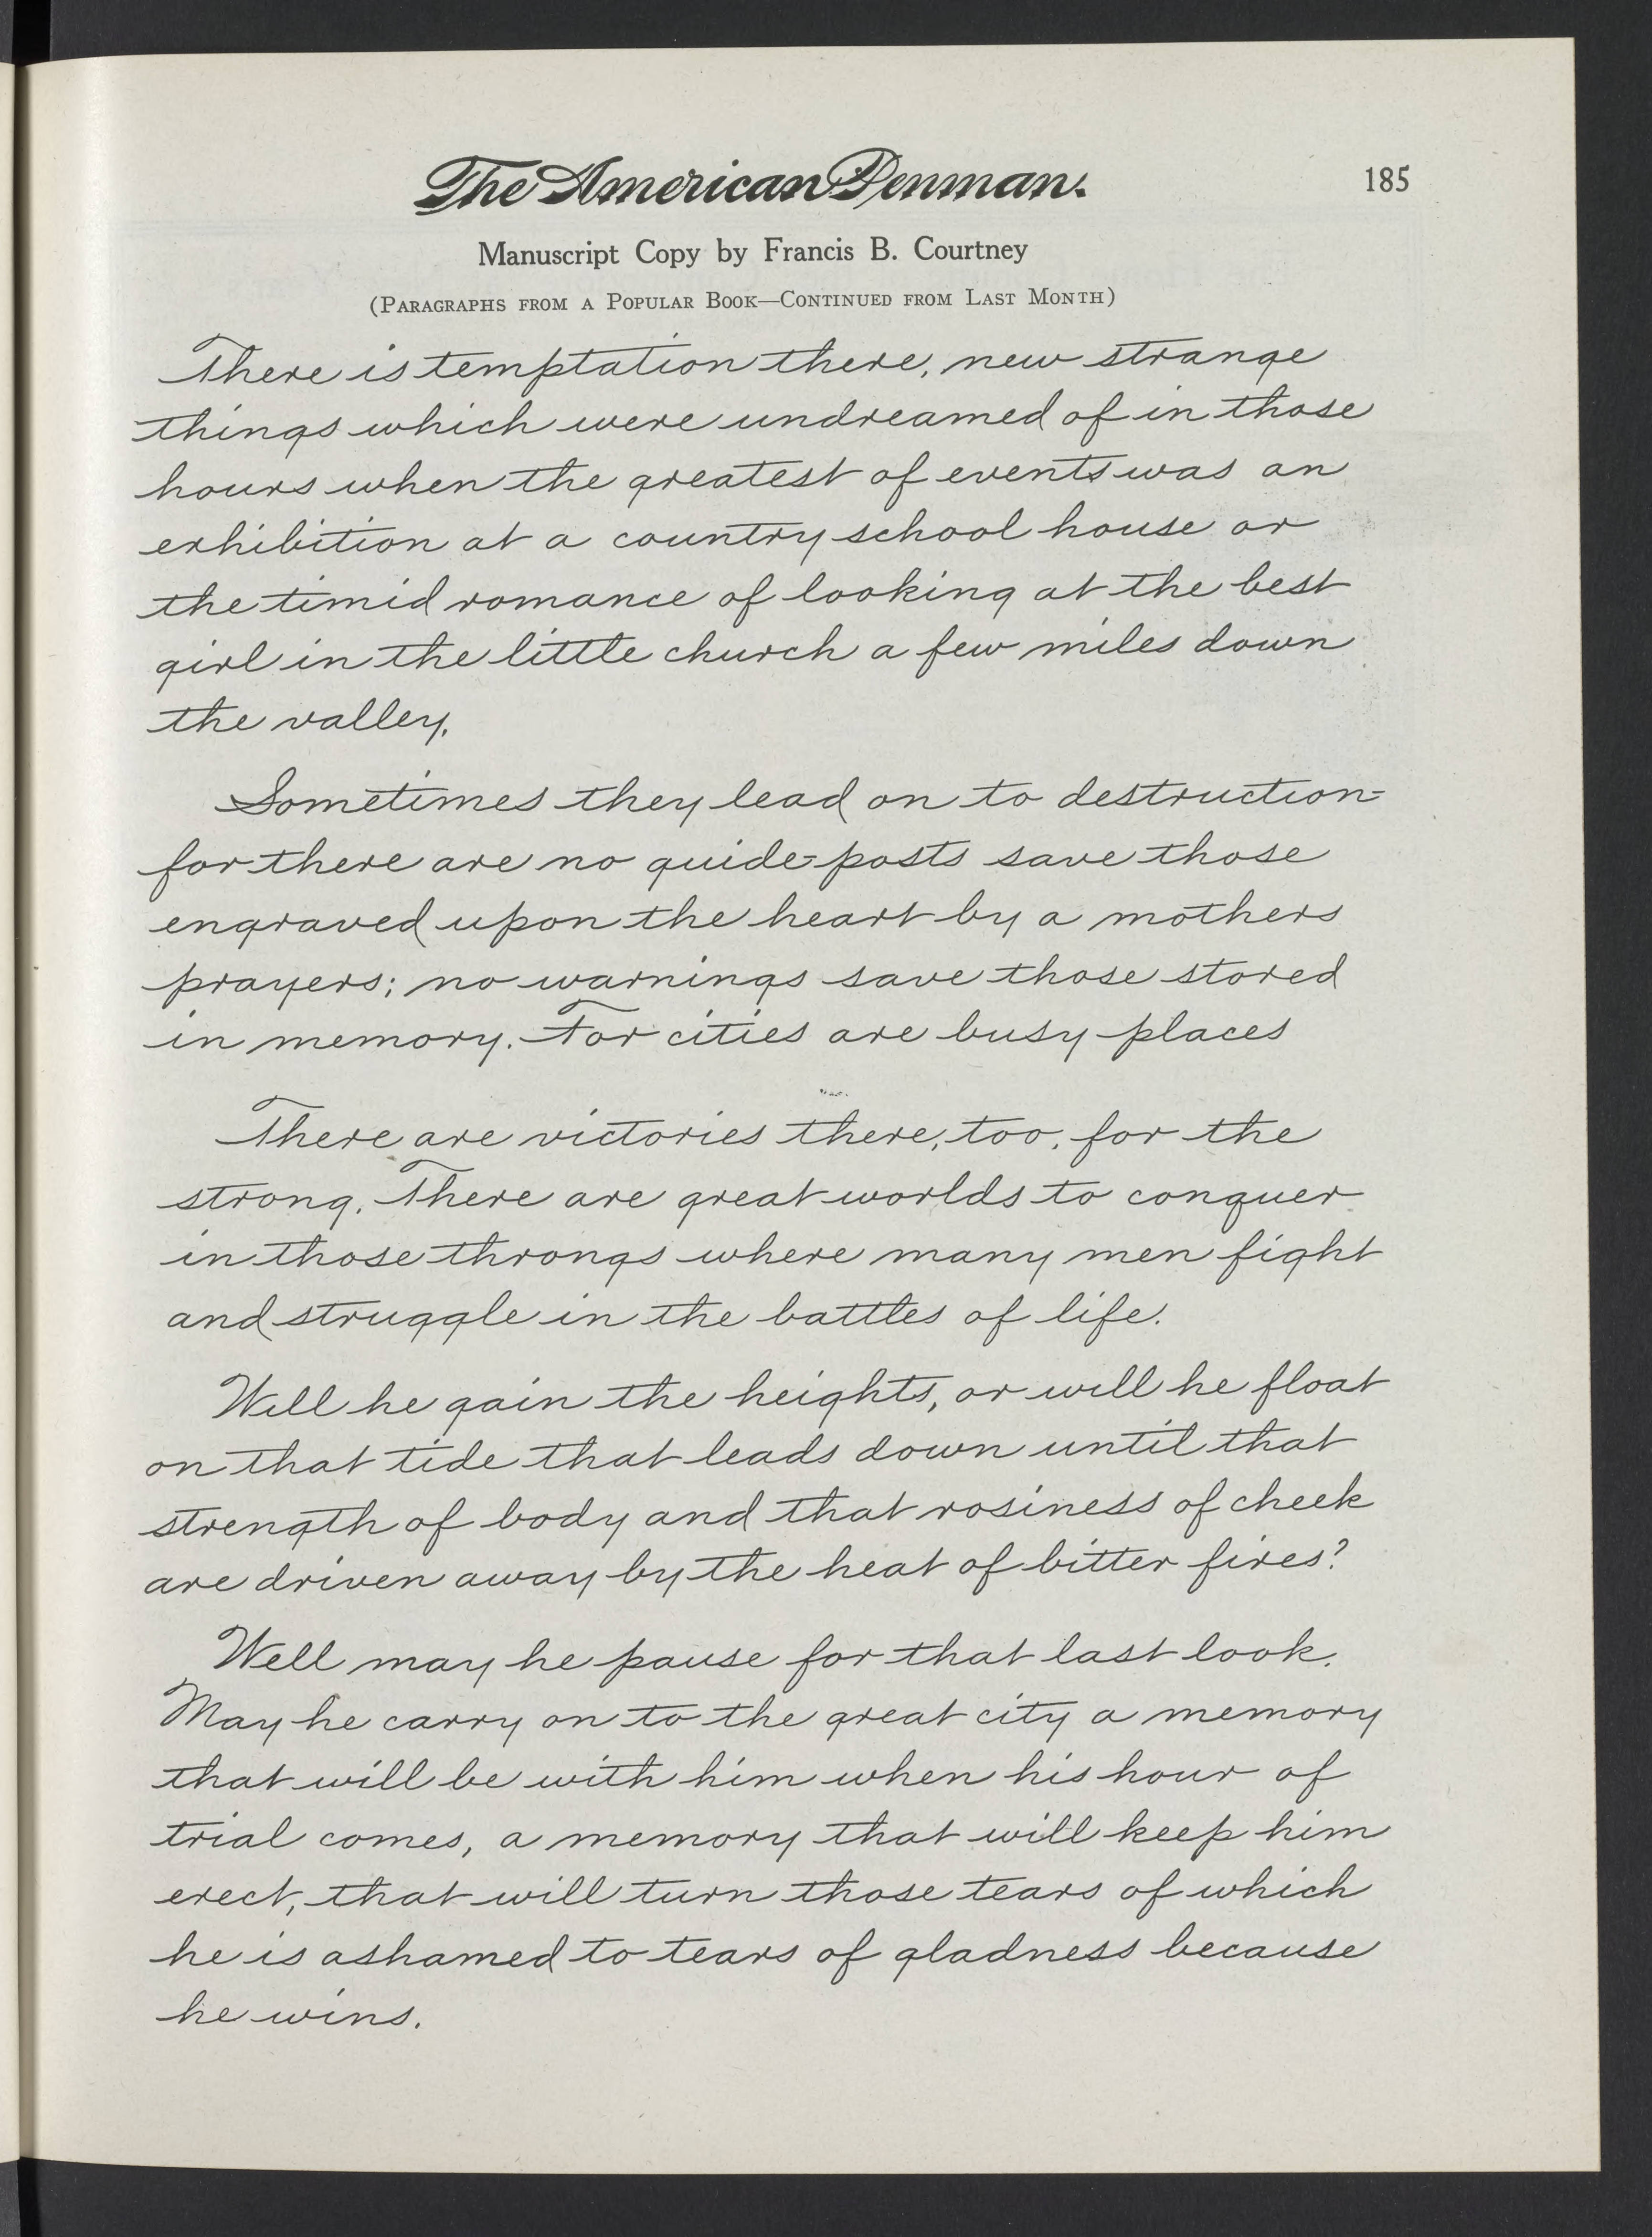 The American Penman.
185
Manuscript Copy by Francis B. Courtney
(Paragraphs from a Popular Book—Continued from Last Month)
There is temptation there, new strange
things which were undreamed of in those
hours when the greatest of events was an
exhibition at a country school house or
the timid romance of looking at the best
girl in the little church a few miles down
the valley.
Sometimes they lead on to destruction-
for there are no guide-posts save those
engraved upon the heart by a mothers
prayers; no warnings save those stored
in memory. For cities are busy places
There are victories there, too, for the
strong. There are great worlds to conquer
in those throngs where many men fight
and struggle in the battles of life.
Will he gain the heights, or will he float
on that tide that leads down until that
strength of body and that rosiness of cheek
are driven away by the heat of bitter fires?
Well may he pause for that last look.
May he carry on to the great city a memory
that will be with him when his hour of
trial comes, a memory that will keep him
erect, that will turn those tears of which
he is ashamed to tears of gladness because
he wins.